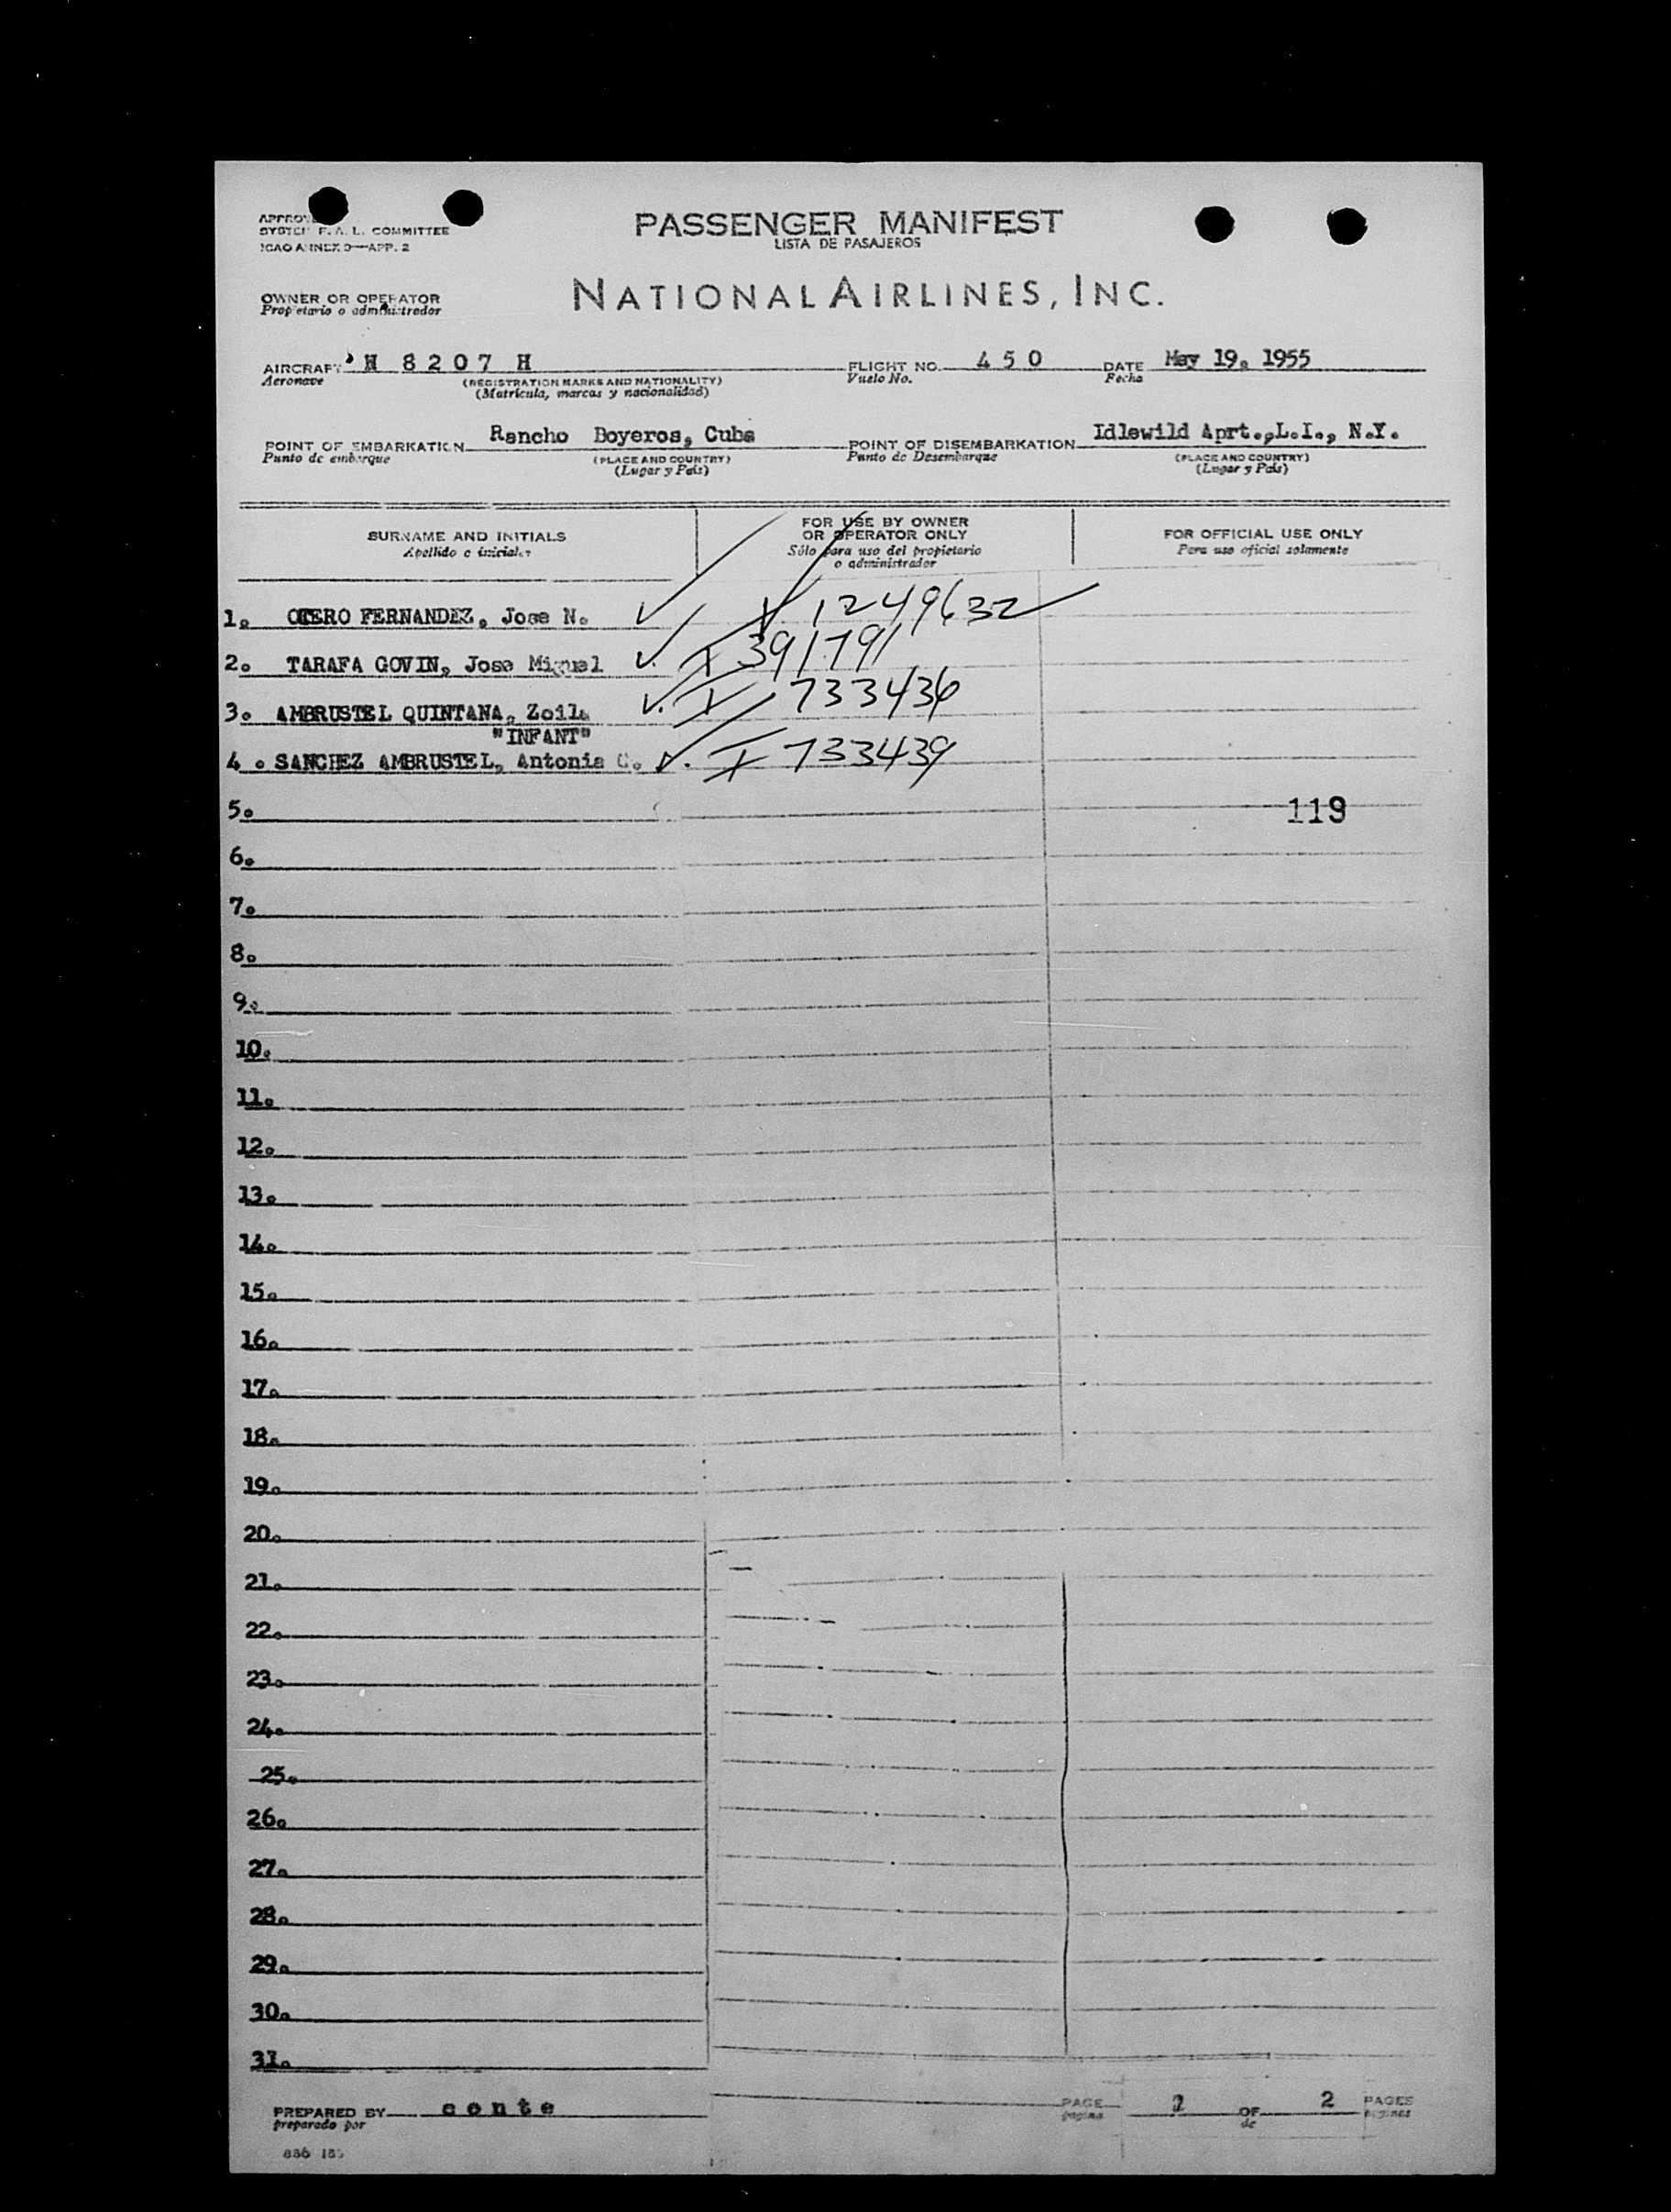 PASSENGER MANIFEST
LISTA DE PASAJEROS
SYSTEM F. A. L. COMMITTEE
ICAO ANNEX 9—APP. 2
NATIONAL AIRLINES, INC.
OWNER OR OPERATOR
Propietario o administrador
AIRCRAFT N 8207 H FLIGHT NO. 450 DATE May 19, 1955
Aeronave (REGISTRATION MARKS AND NATIONALITY) Vuelo No. Fecha
(Matrícula, marcas y nacionalidad)
POINT OF EMBARKATION Rancho Boyeros, Cuba POINT OF DISEMBARKATION Idlewild Aprt.,L.I., N.Y.
Punto de embarque (PLACE AND COUNTRY) Punto de Desembarque (PLACE AND COUNTRY)
(Lugar y País) (Lugar y País)
SURNAME AND INITIALS FOR USE BY OWNER OR OPERATOR ONLY FOR OFFICIAL USE ONLY
Apellido e iniciales Sólo para uso del propietario o administrador Para uso oficial solamente
1. OTERO FERNANDEZ, Jose N. ✓ 1249632
2. TARAFA GOVIN, Jose Miguel ✓ I 391791
3. AMBRUSTEL QUINTANA, Zoila ✓ I 733436
"INFANT"
4. SANCHEZ AMBRUSTEL, Antonia C. ✓ I 733439
5. 119
6.
7.
8.
9.
10.
11.
12.
13.
14.
15.
16.
17.
18.
19.
20.
21.
22.
23.
24.
25.
26.
27.
28.
29.
30.
31.
PREPARED BY conte PAGE OF 2 PAGES
preparado por página de páginas